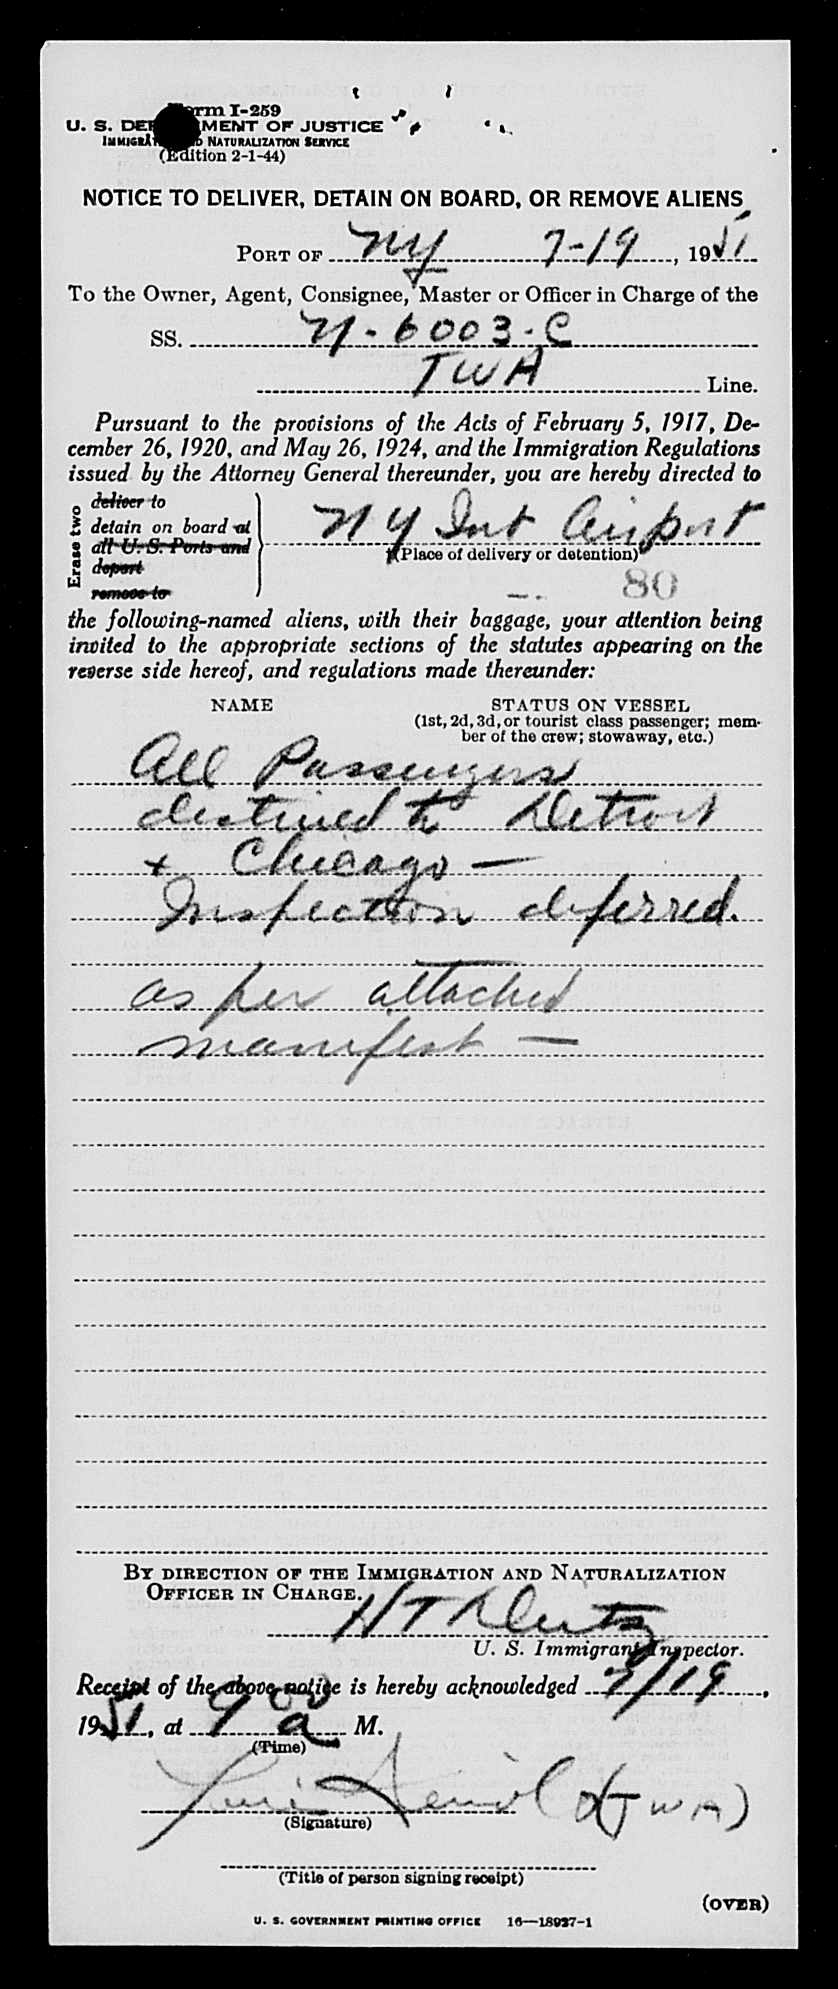 Form I-259
U. S. DEPARTMENT OF JUSTICE
IMMIGRATION AND NATURALIZATION SERVICE
(Edition 2-1-44)
NOTICE TO DELIVER, DETAIN ON BOARD, OR REMOVE ALIENS
PORT OF NY 7-19, 1951
To the Owner, Agent, Consignee, Master or Officer in Charge of the
SS. N-6003-C
TWA Line.
Pursuant to the provisions of the Acts of February 5, 1917, De-
cember 26, 1920, and May 26, 1924, and the Immigration Regulations
issued by the Attorney General thereunder, you are hereby directed to
Erase two
deliver to
detain on board at
all U. S. Ports and
deport
remove to
NY Int Airport
(Place of delivery or detention)
80
the following-named aliens, with their baggage, your attention being
invited to the appropriate sections of the statutes appearing on the
reverse side hereof, and regulations made thereunder:
NAME STATUS ON VESSEL
(1st, 2d, 3d, or tourist class passenger; mem-
ber of the crew; stowaway, etc.)
All Passengers
destined to Detroit
+ Chicago —
Inspection deferred.
as per attached
manifest —
BY DIRECTION OF THE IMMIGRATION AND NATURALIZATION
OFFICER IN CHARGE.
H T
U. S. Immigrant Inspector.
Receipt of the above notice is hereby acknowledged 7/19,
1951, at 9 00 a M.
(Time)
(TWA)
(Signature)
(Title of person signing receipt)
(OVER)
U. S. GOVERNMENT PRINTING OFFICE 16—18927-1